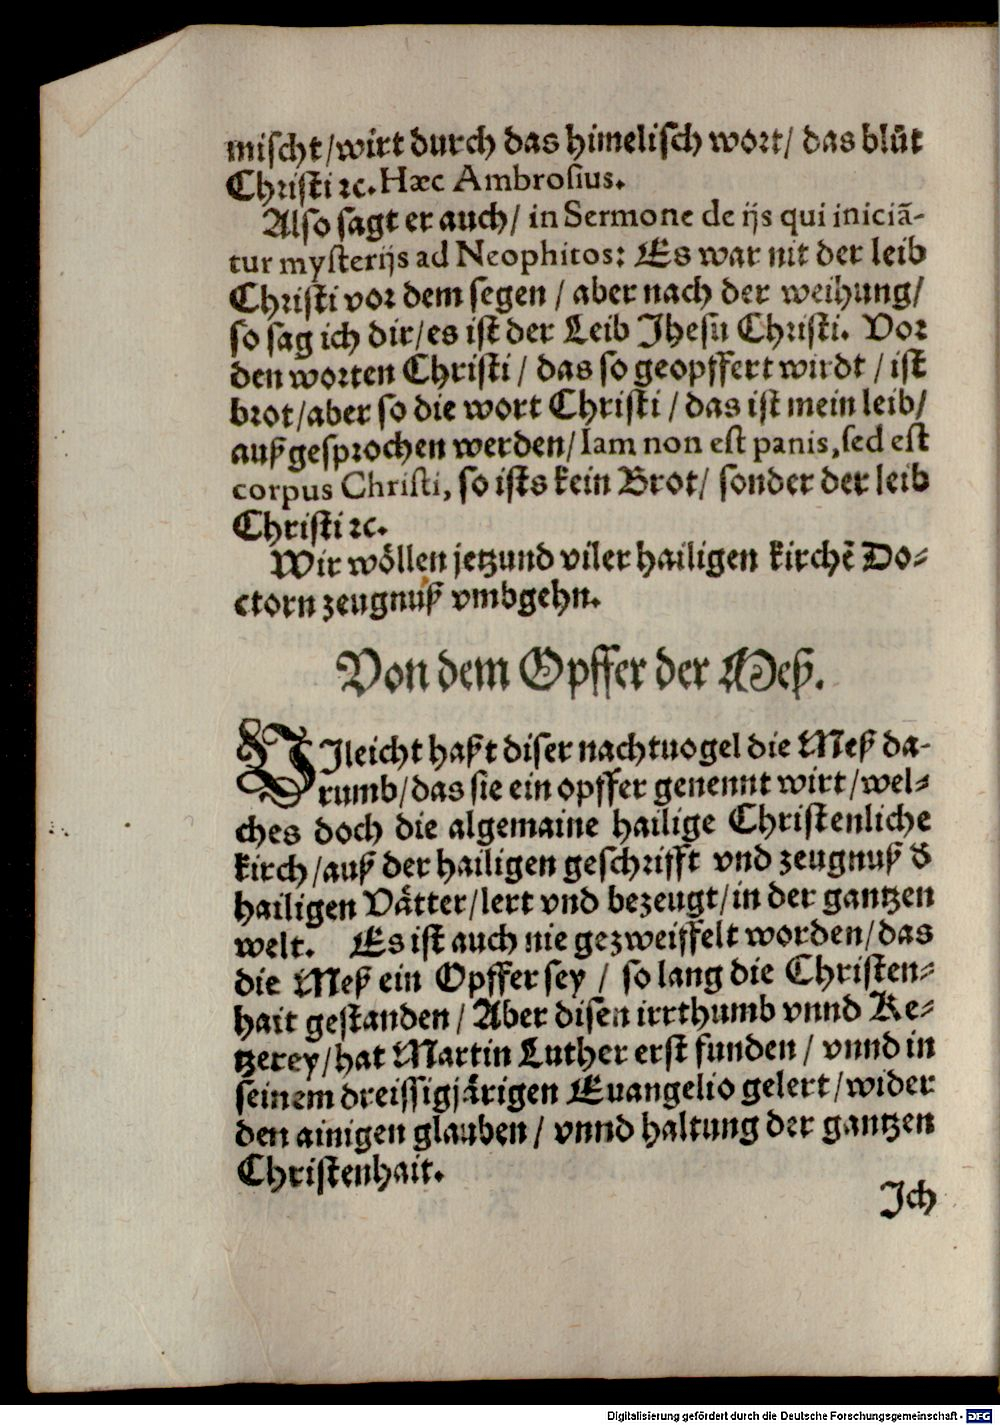 mischt/wirt durch das himelisch wort/ das blůt
Christi ꝛc. Hæc Ambrosius.
Also sagt er auch/ in Sermone de ijs qui iniciā-
tur mysterijs ad Neophitos: Es war nit der leib
Christi vor dem segen / aber nach der weihung/
so sag ich dir/es ist der Leib Jhesu Christi. Vor
den worten Christi / das so geopffert wirdt / ist
brot/aber so die wort Christi / das ist mein leib/
außgesprochen werden/Iam non est panis, sed est
corpus Christi, so ists kein Brot/ sonder der leib
Christi ꝛc.
Wir wöllen jetzund viler hailigen kirchē Do-
ctorn zeugnuß vmbgehn.
Von dem Opffer der Meß.
VIleicht haßt diser nachtuogel die Meß da-
rumb/das sie ein opffer genennt wirt/wel-
ches doch die algemaine hailige Christenliche
kirch/auß der hailigen geschrifft vnd zeugnuß d
hailigen Vätter/lert vnd bezeugt/in der gantzen
welt. Es ist auch nie gezweiffelt worden/das
die Meß ein Opffer sey / so lang die Christen-
hait gestanden / Aber disen irrthumb vnnd Ke-
tzerey/hat Martin Luther erst funden / vnnd in
seinem dreissigjärigen Euangelio gelert/wider
den ainigen glauben / vnnd haltung der gantzen
Christenhait.
Ich
Digitalisierung gefördert durch die Deutsche Forschungsgemeinschaft - DFG